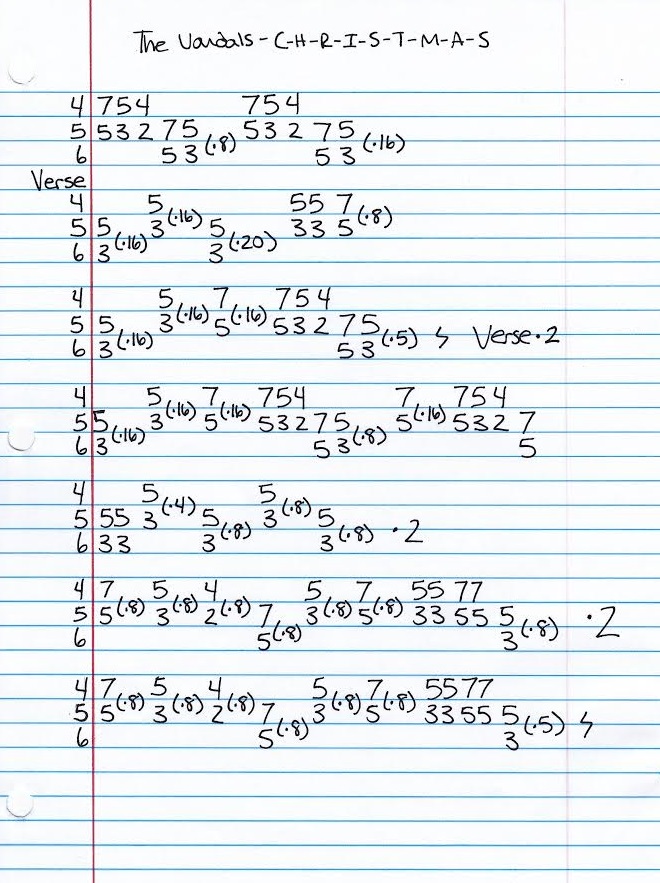 The Vandals - C-H-R-I-S-T-M-A-S
4 754 754
5 532 75 (·8) 532 75 (·16)
6 53 53
Verse
4 5 55 7
5 5 3(·16) 5 33 5(·8)
6 3(·16) 3(·20)
4 5 7 754
5 5 3(·16) 5(·16) 532 75 ϟ Verse·2
6 3(·16) 53(·5)
4 5 7 754 7 754
5 5 3(·16) 5(·16) 532 75 5(·16) 532 7
6 3(·16) 53(·8) 5
4 5 5
5 55 3(·4) 5 3(·8) 5
6 33 3(·8) 3(·8) ·2
4 7 5 4 5 7 55 77
5 5(·8) 3(·8) 2(·8) 7 3(·8) 5(·8) 33 55 5 ·2
6 5(·8) 3(·8)
4 7 5 4 5 7 55 77
5 5(·8) 3(·8) 2(·8) 7 3(·8) 5(·8) 33 55 5 ϟ
6 5(·8) 3(·5)